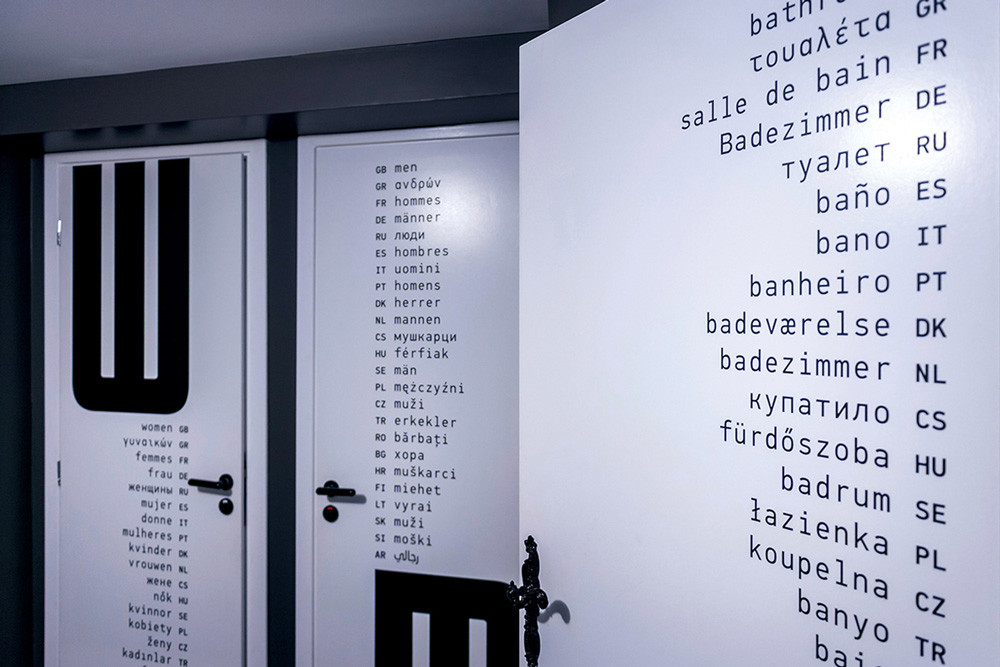 W
women GB
γυναικών GR
femmes FR
frau DE
женщины RU
mujer ES
donne IT
mulheres PT
kvinder DK
vrouwen NL
жене CS
nők HU
kvinnor SE
kobiety PL
ženy CZ
kadınlar TR
GB men
GR ανδρών
FR hommes
DE männer
RU люди
ES hombres
IT uomini
PT homens
DK herrer
NL mannen
CS мушкарци
HU férfiak
SE män
PL mężczyźni
CZ muži
TR erkekler
RO bărbați
BG хора
HR muškarci
FI miehet
LT vyrai
SK muži
SI moški
AR رجالي
GR
τουαλέτα GR
salle de bain FR
Badezimmer DE
туалет RU
baño ES
bano IT
banheiro PT
badeværelse DK
badezimmer NL
купатило CS
fürdőszoba HU
badrum SE
łazienka PL
koupelna CZ
banyo TR